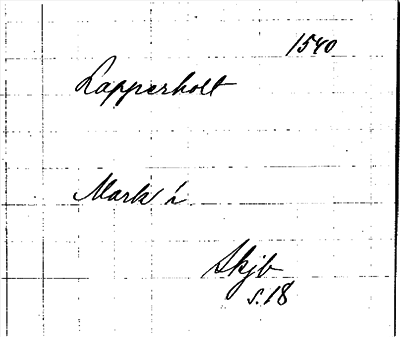 1540
Lapperholt
Mark i
Skjb
s. 18